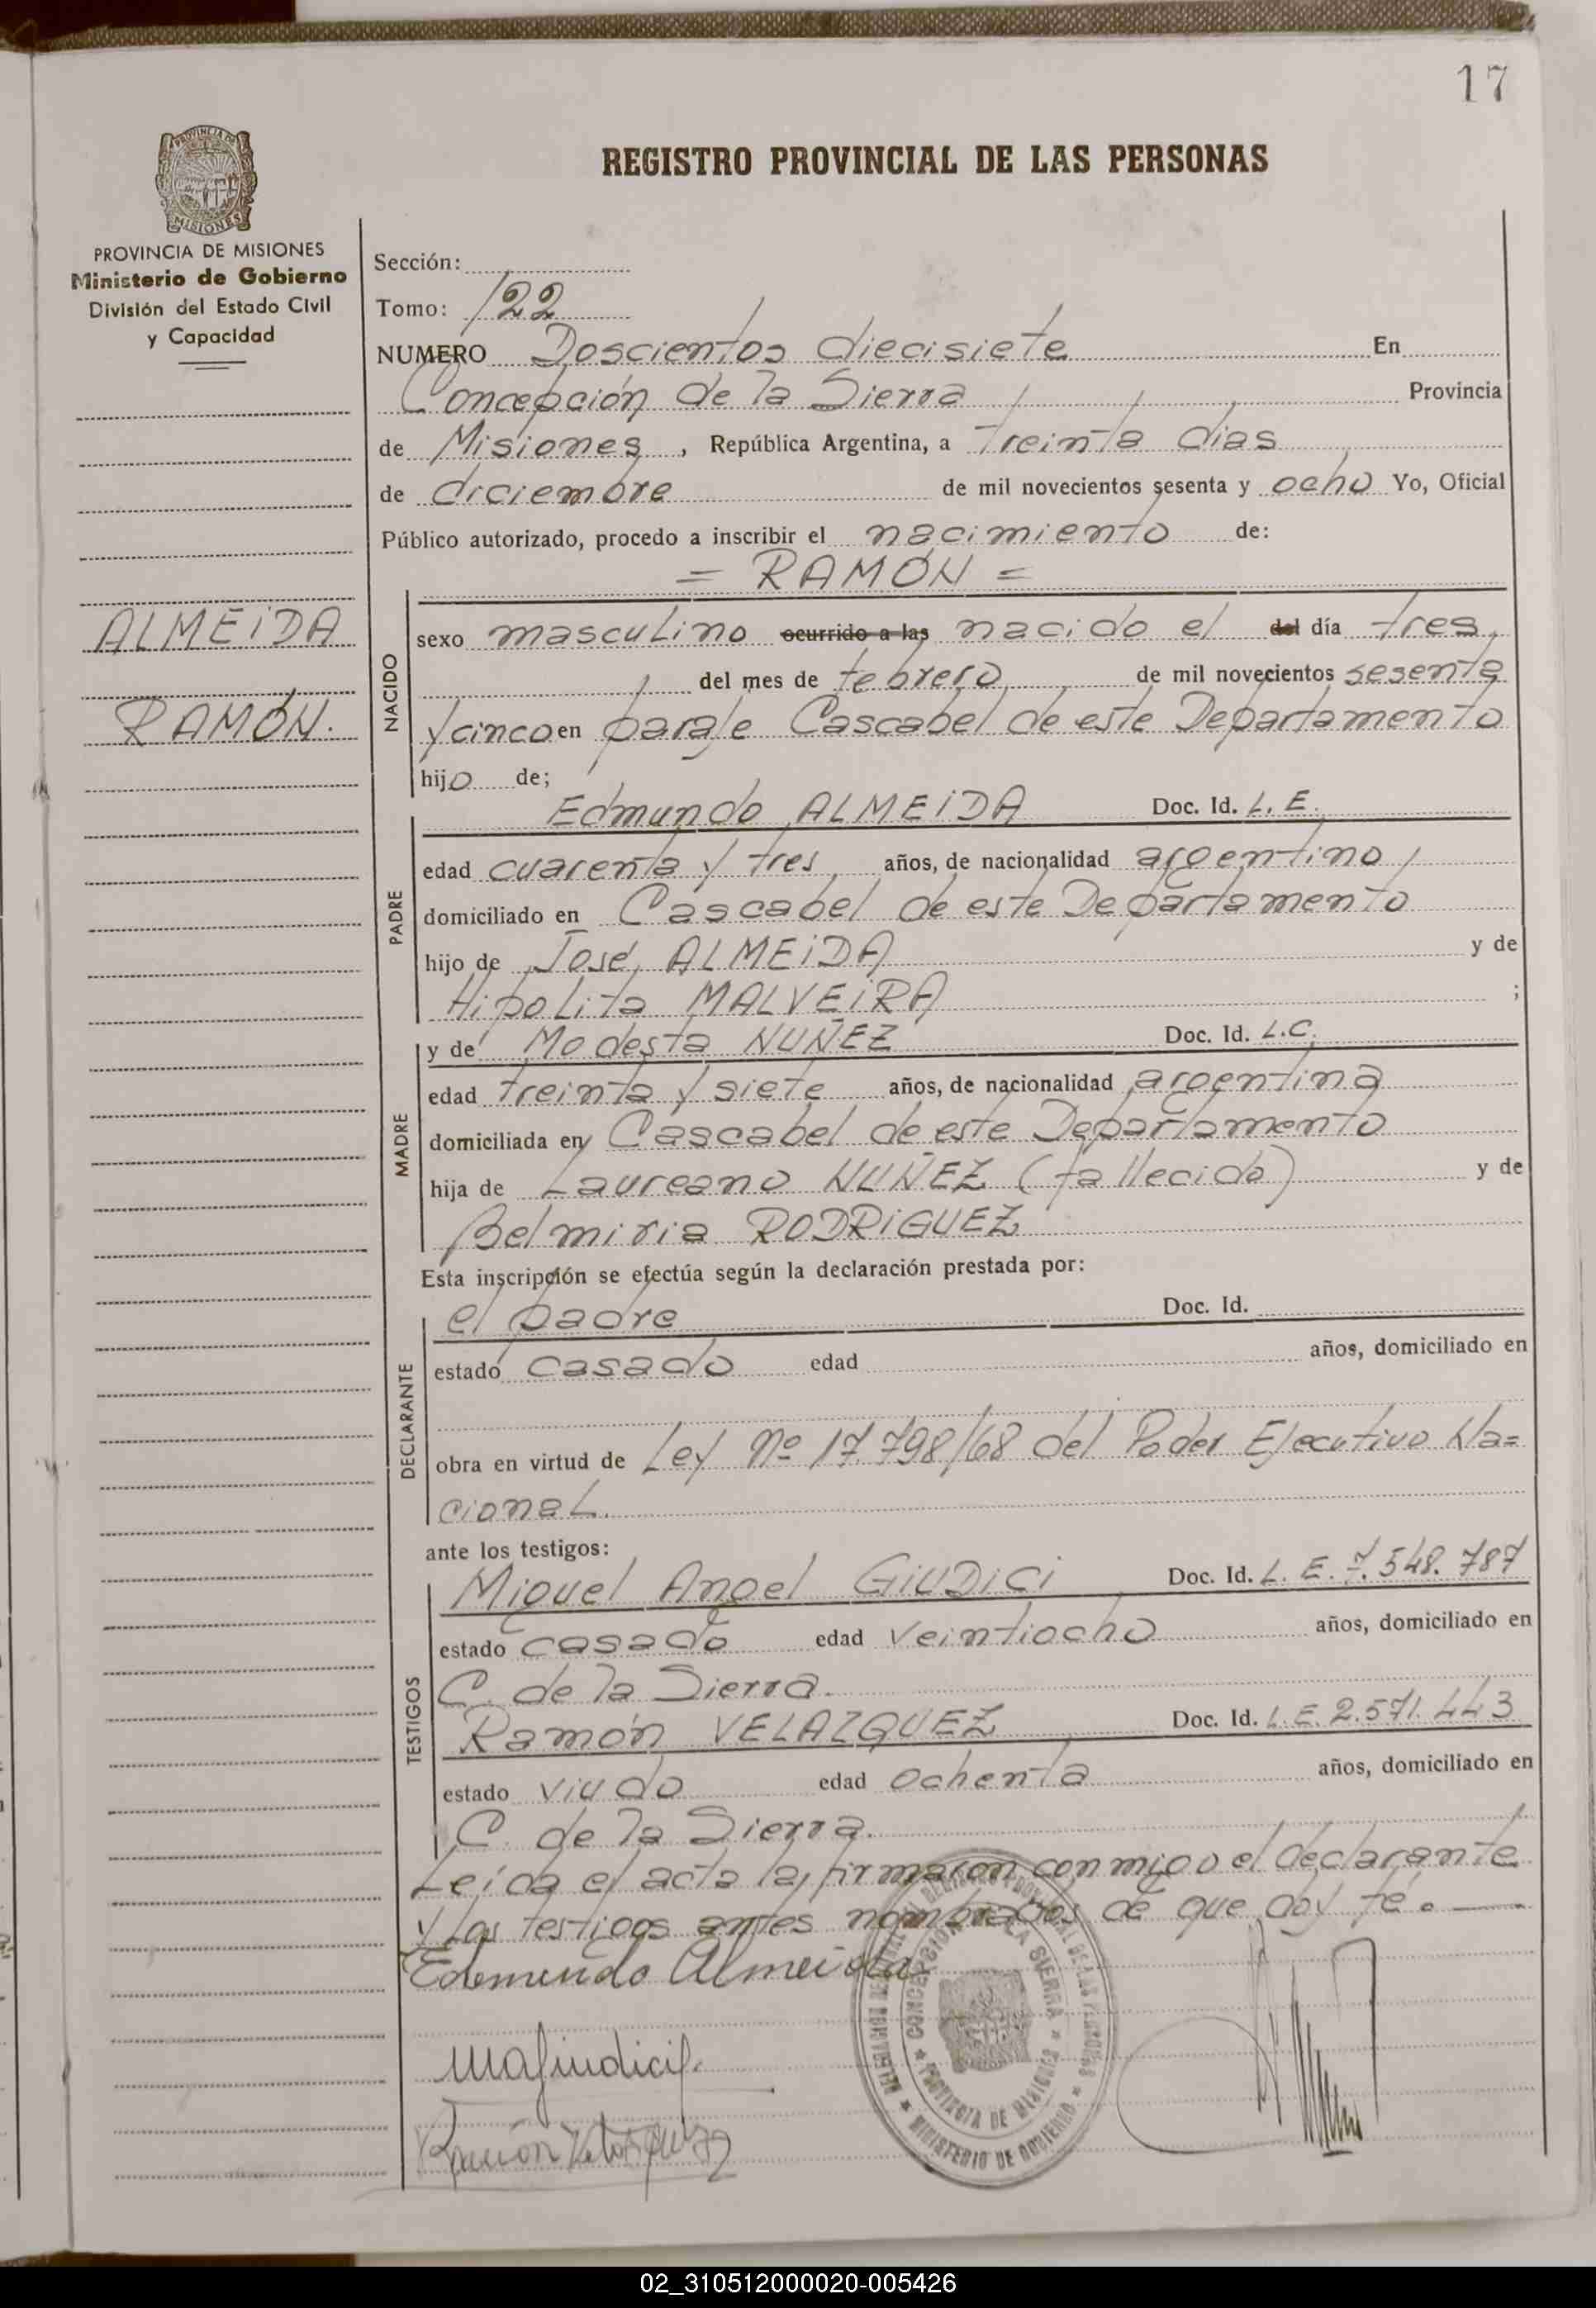 17
REGISTRO PROVINCIAL DE LAS PERSONAS
PROVINCIA DE MISIONES
Ministerio de Gobierno
División del Estado Civil
y Capacidad
ALMEiDA
RAMÓN.
Sección:
Tomo: 122
NUMERO Doscientos diecisiete En
Concepción de la Sierra Provincia
de Misiones, República Argentina, a treinta dias
de diciembre de mil novecientos sesenta y ocho Yo, Oficial
Público autorizado, procedo a inscribir el nacimiento de:
= RAMÓN =
NACIDO
sexo masculino ocurrido a las nacido el del día tres
del mes de febrero de mil novecientos sesenta
y cinco en paraje Cascabel de este Departamento
hijo de;
PADRE
Edmundo ALMEiDA Doc. Id. L. E.
edad cuarenta y tres años, de nacionalidad argentino
domiciliado en Cascabel de este Departamento
hijo de José ALMEiDA y de
Hipolita MALVEiRA ;
MADRE
y de Modesta NUÑEZ Doc. Id. L.C.
edad treinta y siete años, de nacionalidad argentina
domiciliada en Cascabel de este Departamento
hija de Laureano NUÑEZ (fallecido) y de
Belmiria RODRiGUEZ
Esta inscripción se efectúa según la declaración prestada por:
DECLARANTE
el padre Doc. Id.
estado casado edad años, domiciliado en
obra en virtud de Ley Nº 17.798/68 del Poder Ejecutivo Na=
cional.
ante los testigos:
TESTIGOS
Miguel Angel GiUDiCi Doc. Id. L. E. 7.548.787
estado casado edad veintiocho años, domiciliado en
C. de la Sierra.
Ramón VELAZQUEZ Doc. Id. L.E. 2.571.443
estado viudo edad ochenta años, domiciliado en
C. de la Sierra.
Leída el acta la firmaron conmigo el declarante
y los testigos antes nombrados de que doy fé.
Edemundo Almeida
MAGiudici
Ramón Velasquez
CONCEPCION DE LA SIERRA
PROVINCIA DE MISIONES
MINISTERIO DE GOBIERNO
02_310512000020-005426